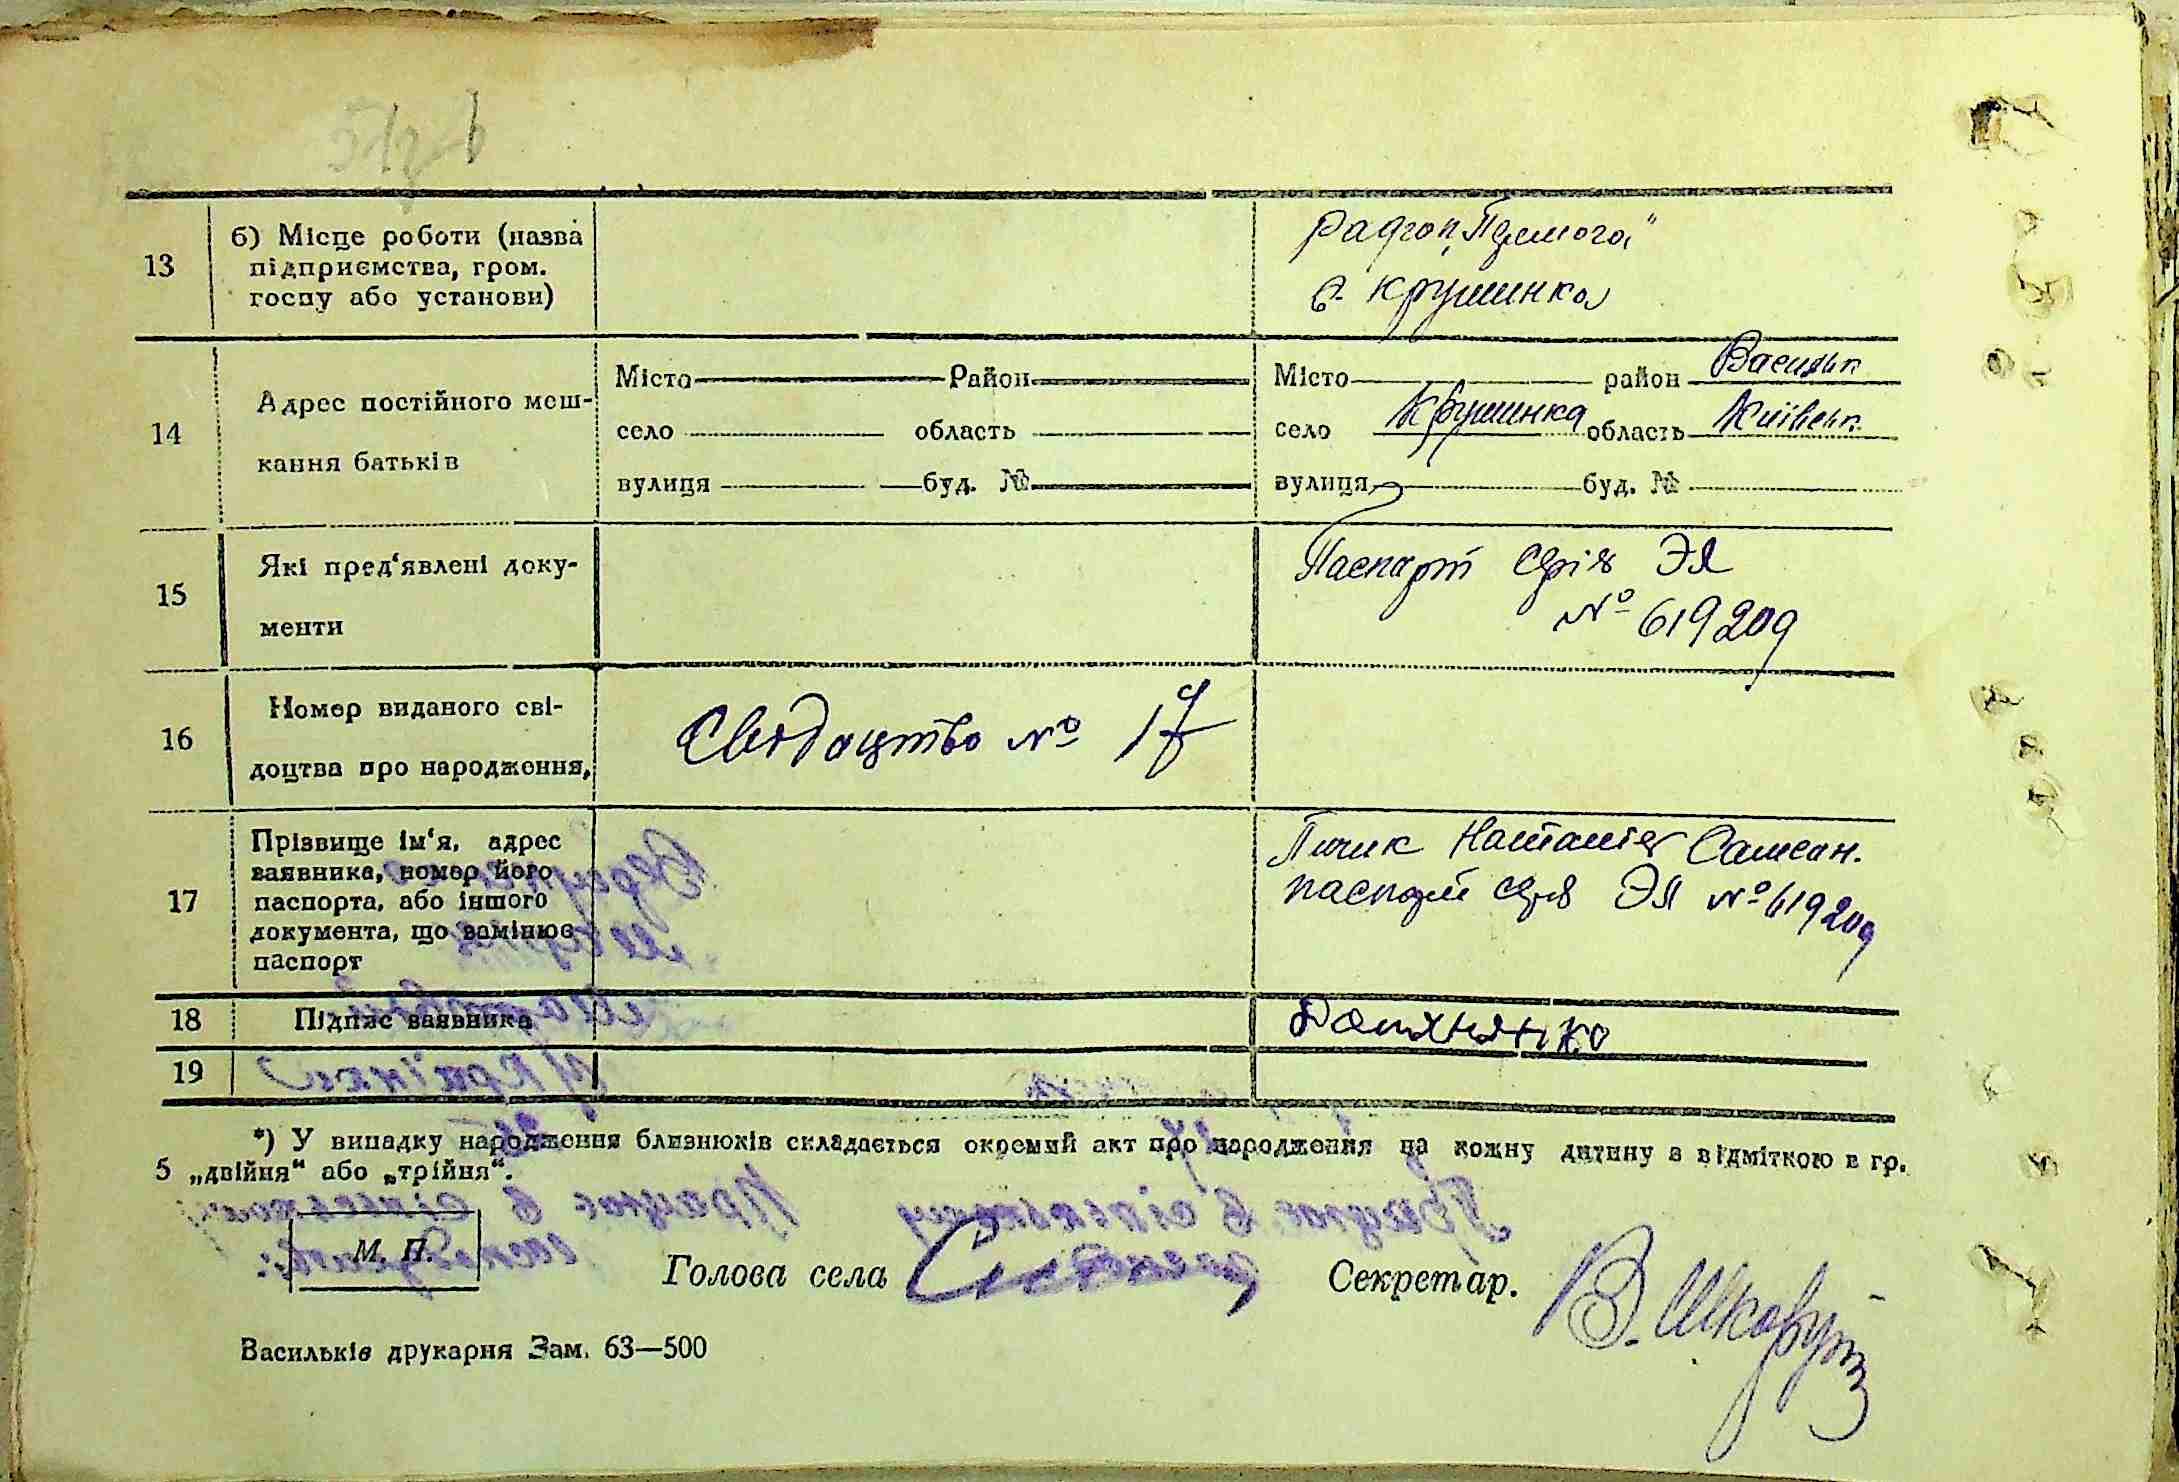 13
б) Місце роботи (назва
підприємства, гром.
госпу або установи)
Радгоп „Перемога"
с. Крушинка
14
Адрес постійного меш-
кання батьків
Місто Район
село область
вулиця буд. №
Місто район Васильк
село Крушинка область Київськ
вулиця буд. №
15
Які пред‘явлені доку-
менти
Паспорт серія ЭЯ
№ 619209
16
Номер виданого сві-
доцтва про народження,
Свідоцтво № 17
17
Прізвище ім‘я, адрес
заявника, номер його
паспорта, або іншого
документа, що замінює
паспорт
Наталія Самсон.
паспорт серія ЭЯ № 619209
18
Підпис заявника
19
*) У випадку народження близнюків складається окремий акт про народження на кожну дитину з відміткою в гр.
5 „двійня“ або „трійня“.
М. П.
Голова села
Секретар.
В. Шкарупа
Васильків друкарня Зам. 63—500